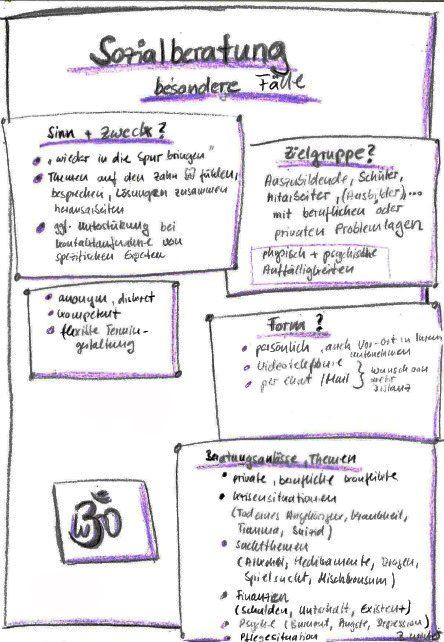 Sozialberatung
besondere Fälle
Sinn + Zweck?
"wieder in die Spur bringen"
Themen auf den Zahn fühlen,
besprechen, Lösungen zusammen
herausarbeiten
ggf. Unterstützung bei
Kontaktaufnahme von
spezifischen Experten
Zielgruppe?
Auszubildende, Schüler,
Mitarbeiter, (Ausbilder),...
mit beruflichen oder
privaten Problemlagen
physisch + psychische
Auffälligkeiten
anonym, diskret
kompetent
flexible Termin-
gestaltung
Form?
persönlich, auch Vor-Ort in Ihrem
Unternehmen
Videotelefonie
per Chat / Mail
Wunsch von
mehr
Distanz
Beratungsanlässe, Themen
private, berufliche Konflikte
Krisensituationen
(Tod eines Angehörigen, Krankheit,
Trauma, Suizid)
Suchtthemen
(Alkohol, Medikamente, Drogen,
Spielsucht, Mischkonsum)
Finanzen
(Schulden, Unterhalt, Existenz)
Psyche (Burnout, Ängste, Depression)
Pflegesituation